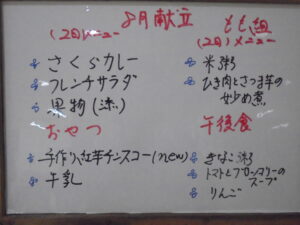 8月献立
(2回)メニュー
さくらカレー
フレンチサラダ
果物(凍)
おやつ
手作り紅芋チンスコー(new)
牛乳
もも組
(2回)メニュー
米粥
ひき肉とさつま芋の
炒め煮
午後食
きなこ粥
トマトとブロッコリーの
スープ
りんご